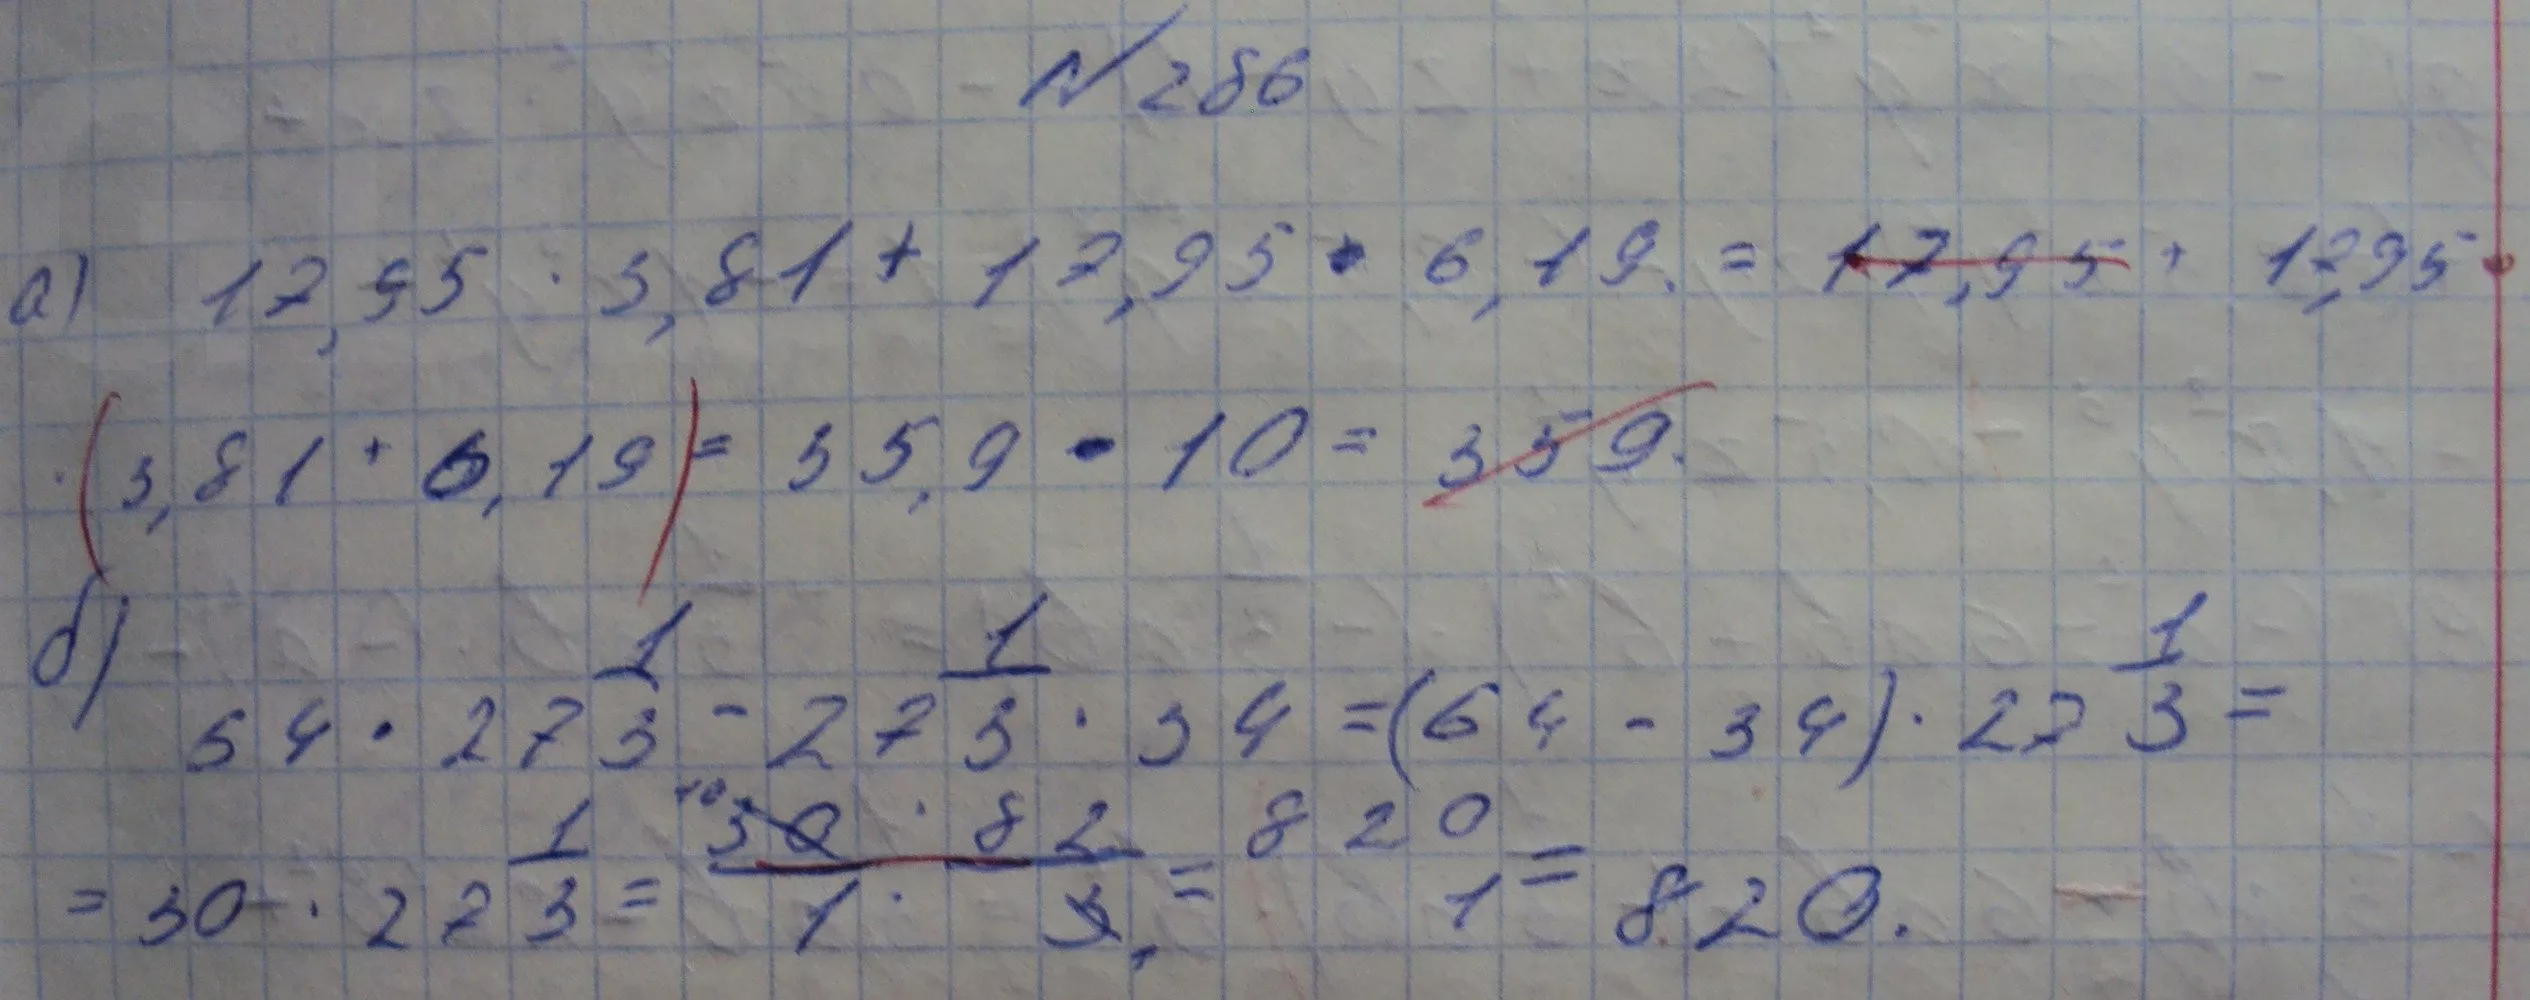 № 286
а) 17,95 · 3,81 + 17,95 · 6,19. = 17,95 + 17,95 ·
· (3,81 + 6,19) = 35,9 · 10 = 359.
б) 64 · 27 1/3 - 27 1/3 · 34 = (64 - 34) · 27 1/3 =
= 30 · 27 1/3 = 10 30 · 82 / 1 · 3 1 = 820 / 1 = 820.